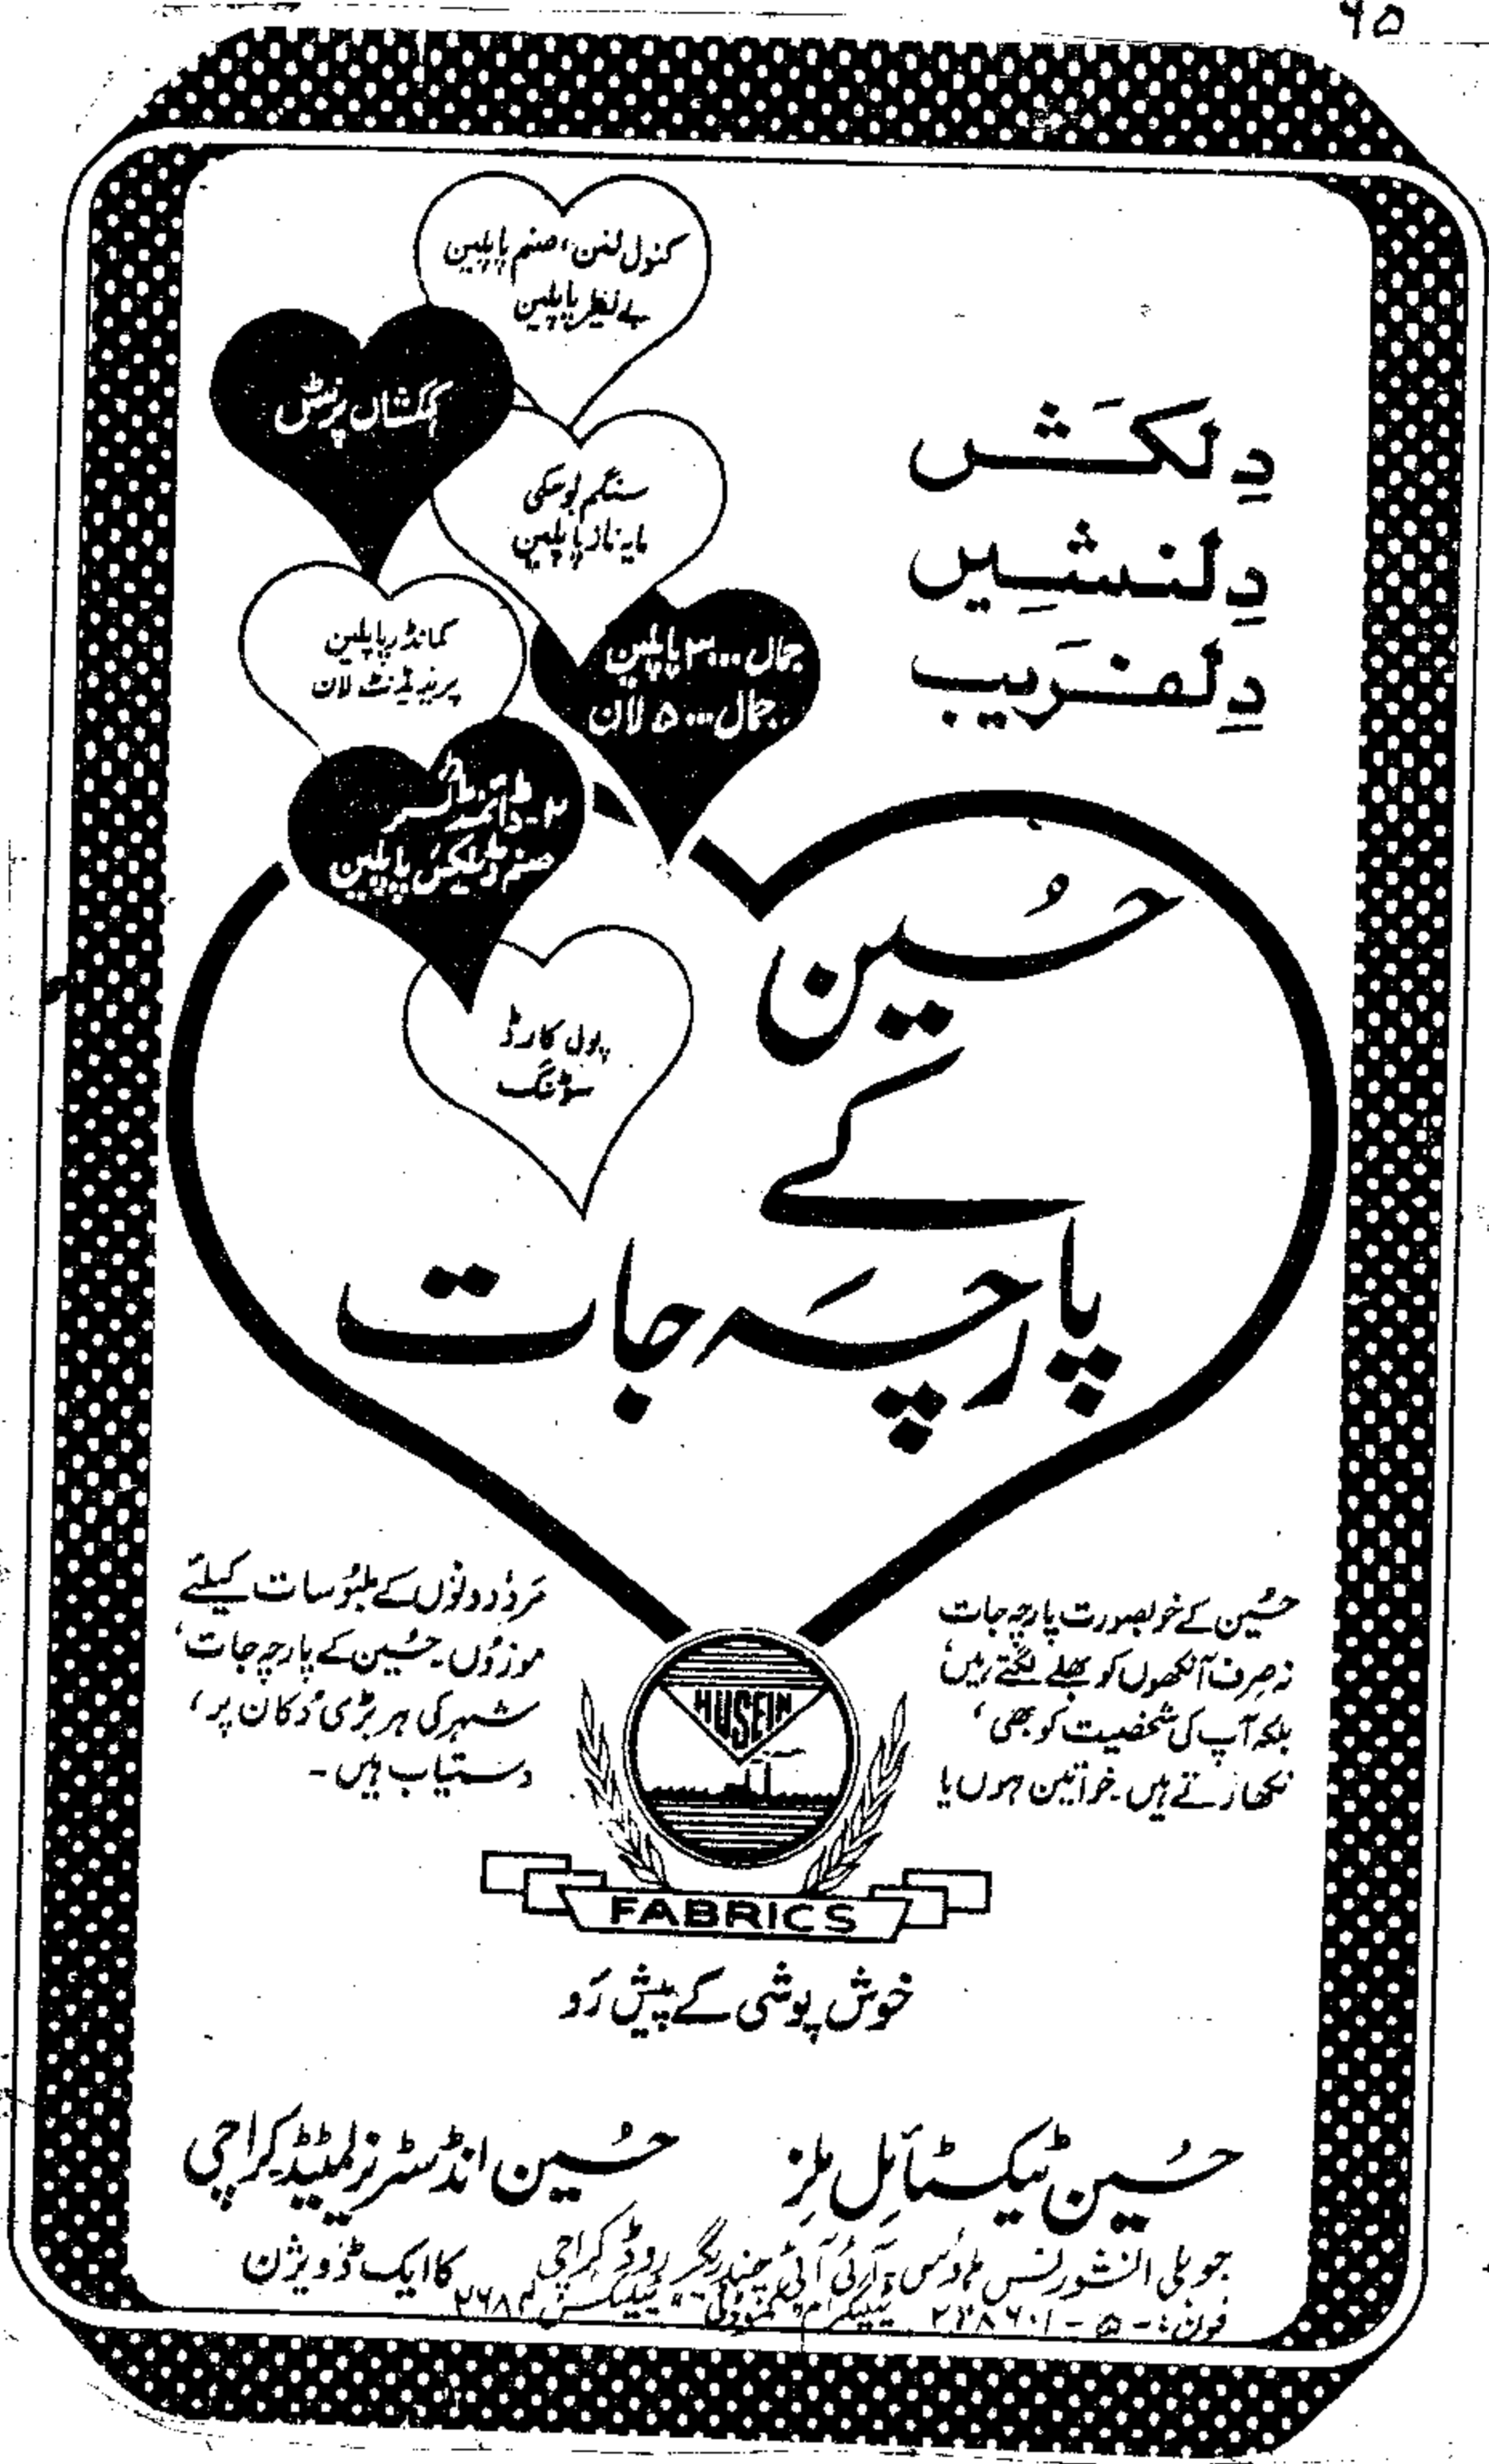 ۶۵
کنول لنن، صنم پاپلین
بے نظیر پاپلین
کہکشاں پرنٹس
سنگم بوسکی
مایہ ناز پاپلین
جمال ۳۰۰۰ پاپلین
جمال ۵۰۰۰ لان
کمانڈر پاپلین
پریذیڈنٹ لان
صنم ڈیلکس پاپلین
پول کارڈ
سوٹنگ
دِلکَش
دِلنشِیں
دِلفرَیب
حُسین
کے
پارچہ جات
حُسین کے خوبصورت پارچہ جات
نہ صرف آنکھوں کو بھلے لگتے ہیں
بلکہ آپ کی شخصیت کو بھی
نکھارتے ہیں۔ خواتین ہوں یا
مرد دونوں کے ملبوسات کیلئے
موزوں۔ حُسین کے پارچہ جات،
شہر کی ہر بڑی دُکان پر،
دستیاب ہیں۔
HUSEIN
FABRICS
خوش پوشی کے پیش رَو
حُسین ٹیکسٹائل ملز
حُسین انڈسٹریز لمیٹڈ کراچی
کا ایک ڈویژن
جوبلی انشورنس ہاؤس آئی آئی چندریگر روڈ کراچی
فون: ۵-